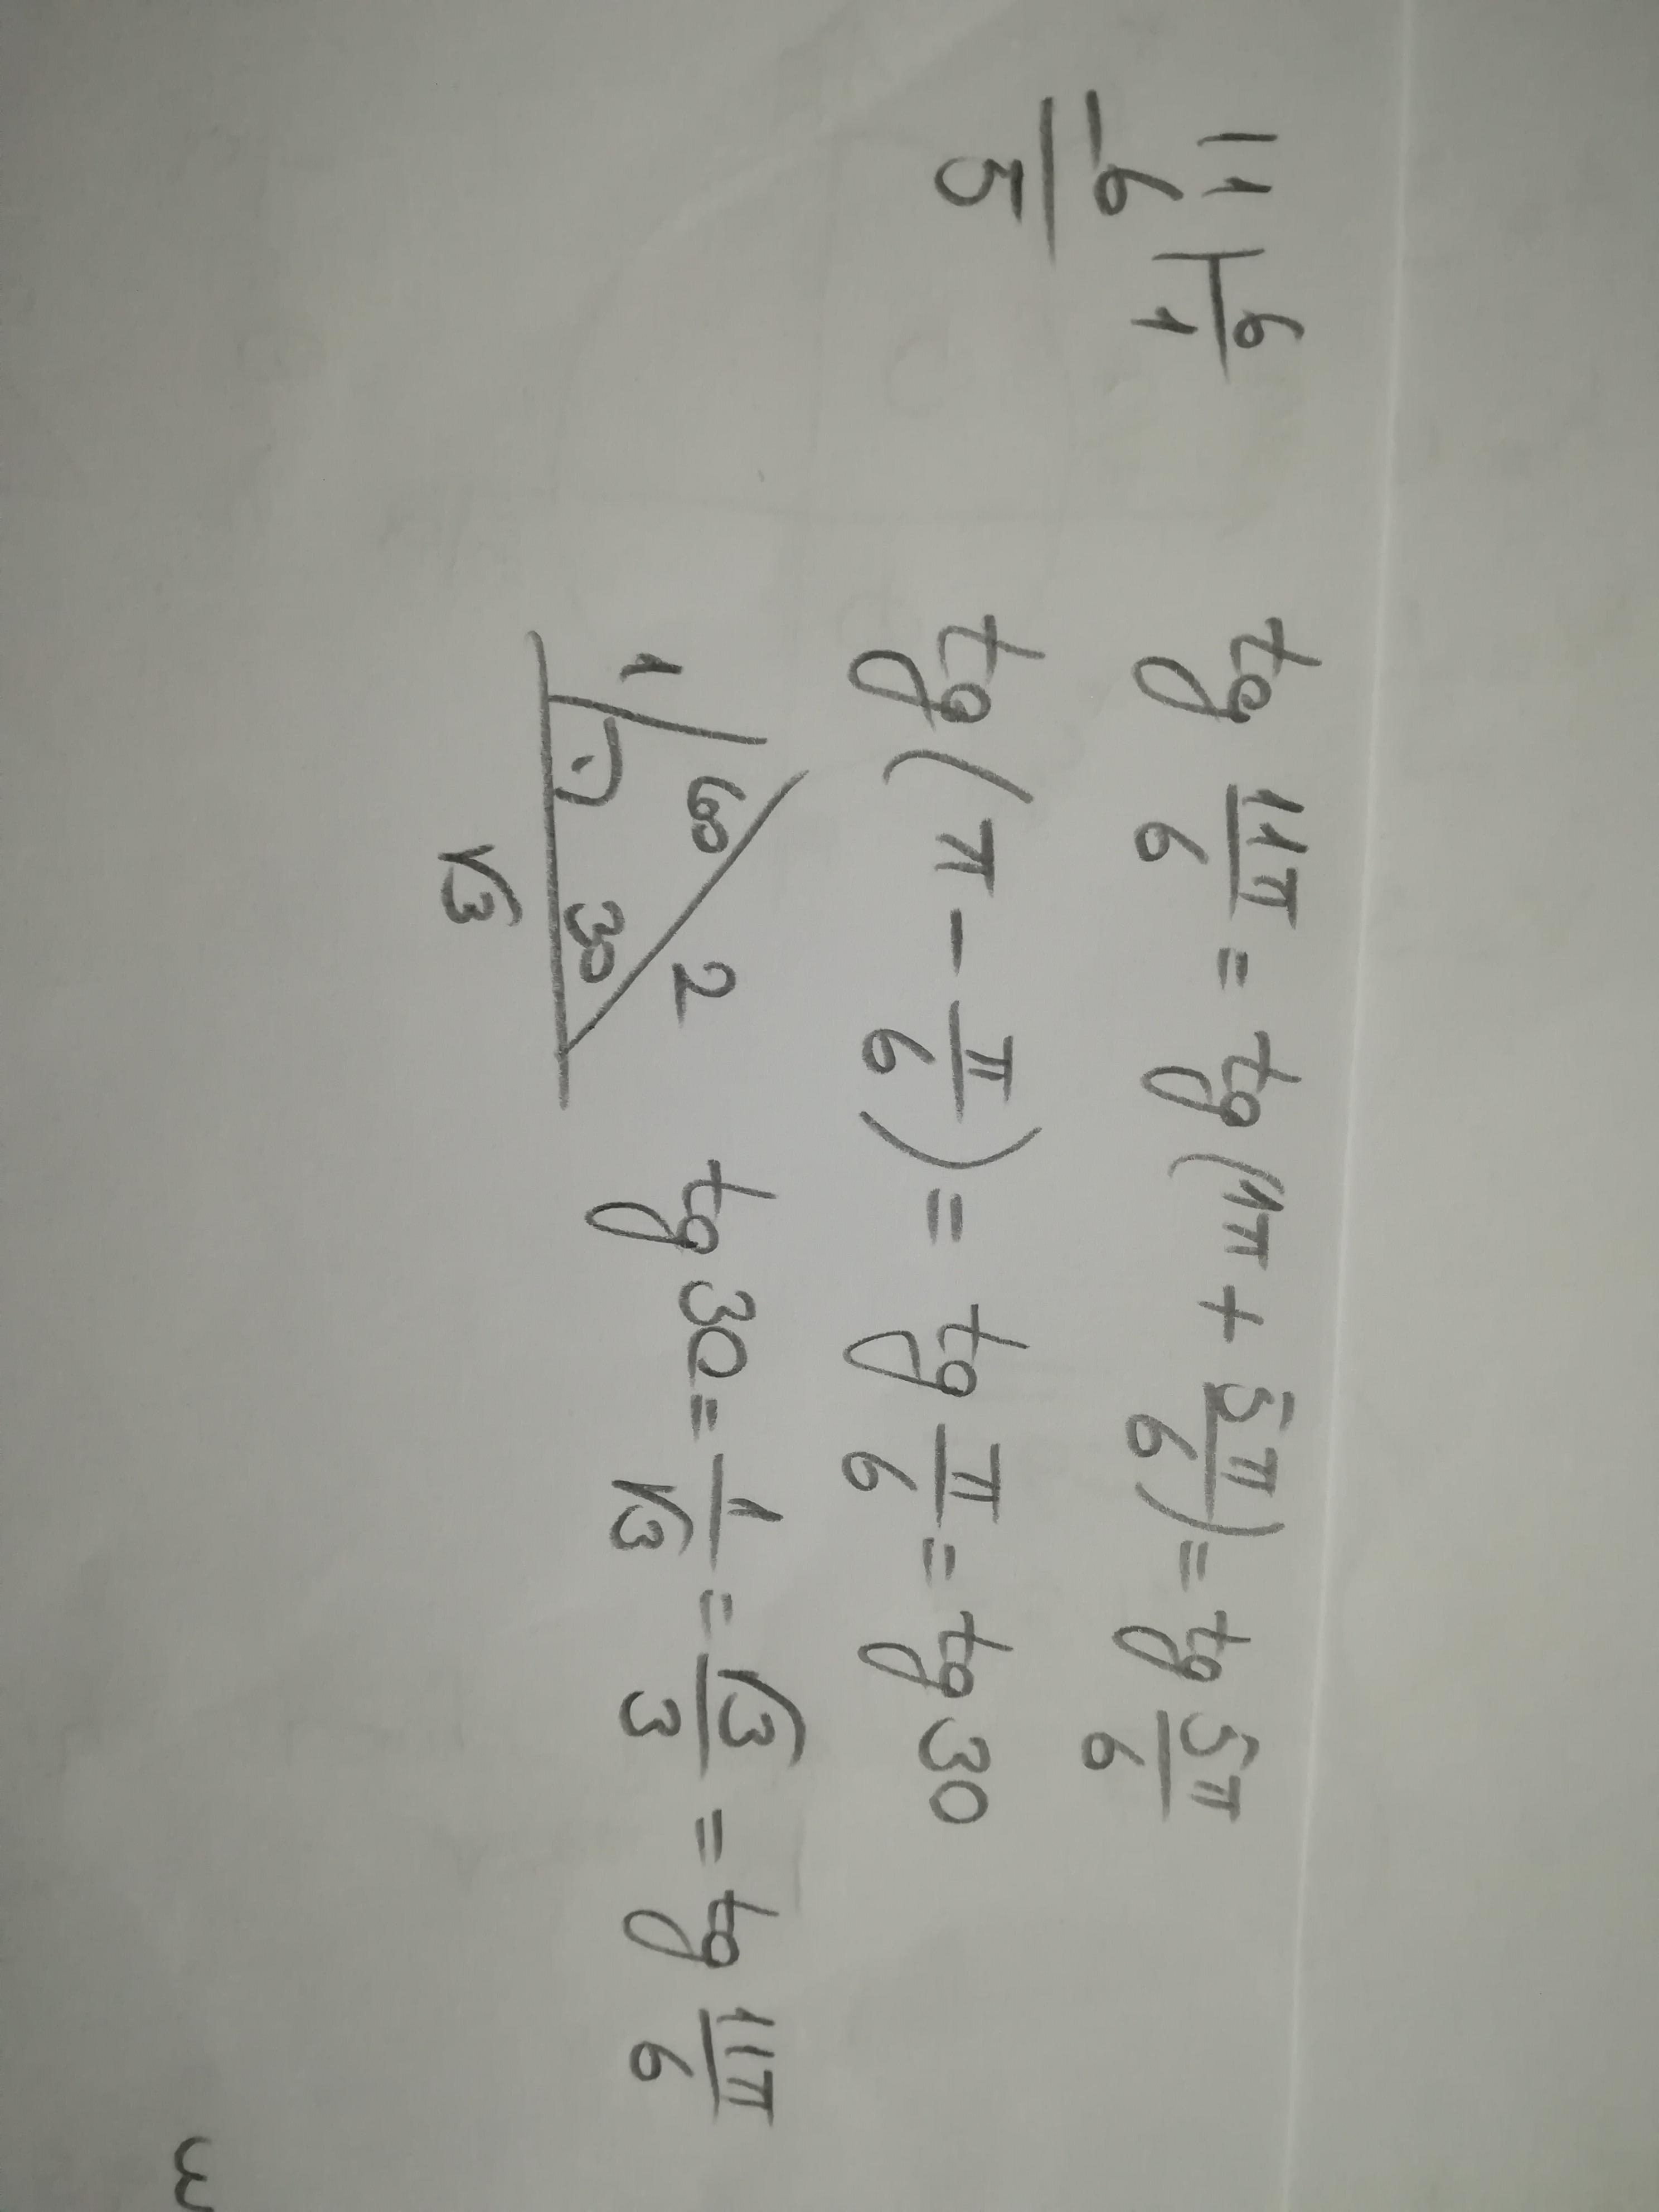 11 | 6
-6 1
5
tg 11π/6 = tg(1π + 5π/6) = tg 5π/6
tg(π - π/6) = tg π/6 = tg 30
1 60 2
30
√3
tg 30 = 1/√3 = √3/3 = tg 11π/6
3